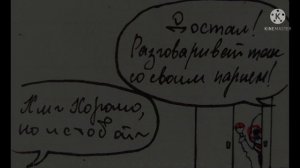 Достал!
Разговаривай так
со своим парнем!
Хмг Хорошо,
но и с тобой
KINEMASTER